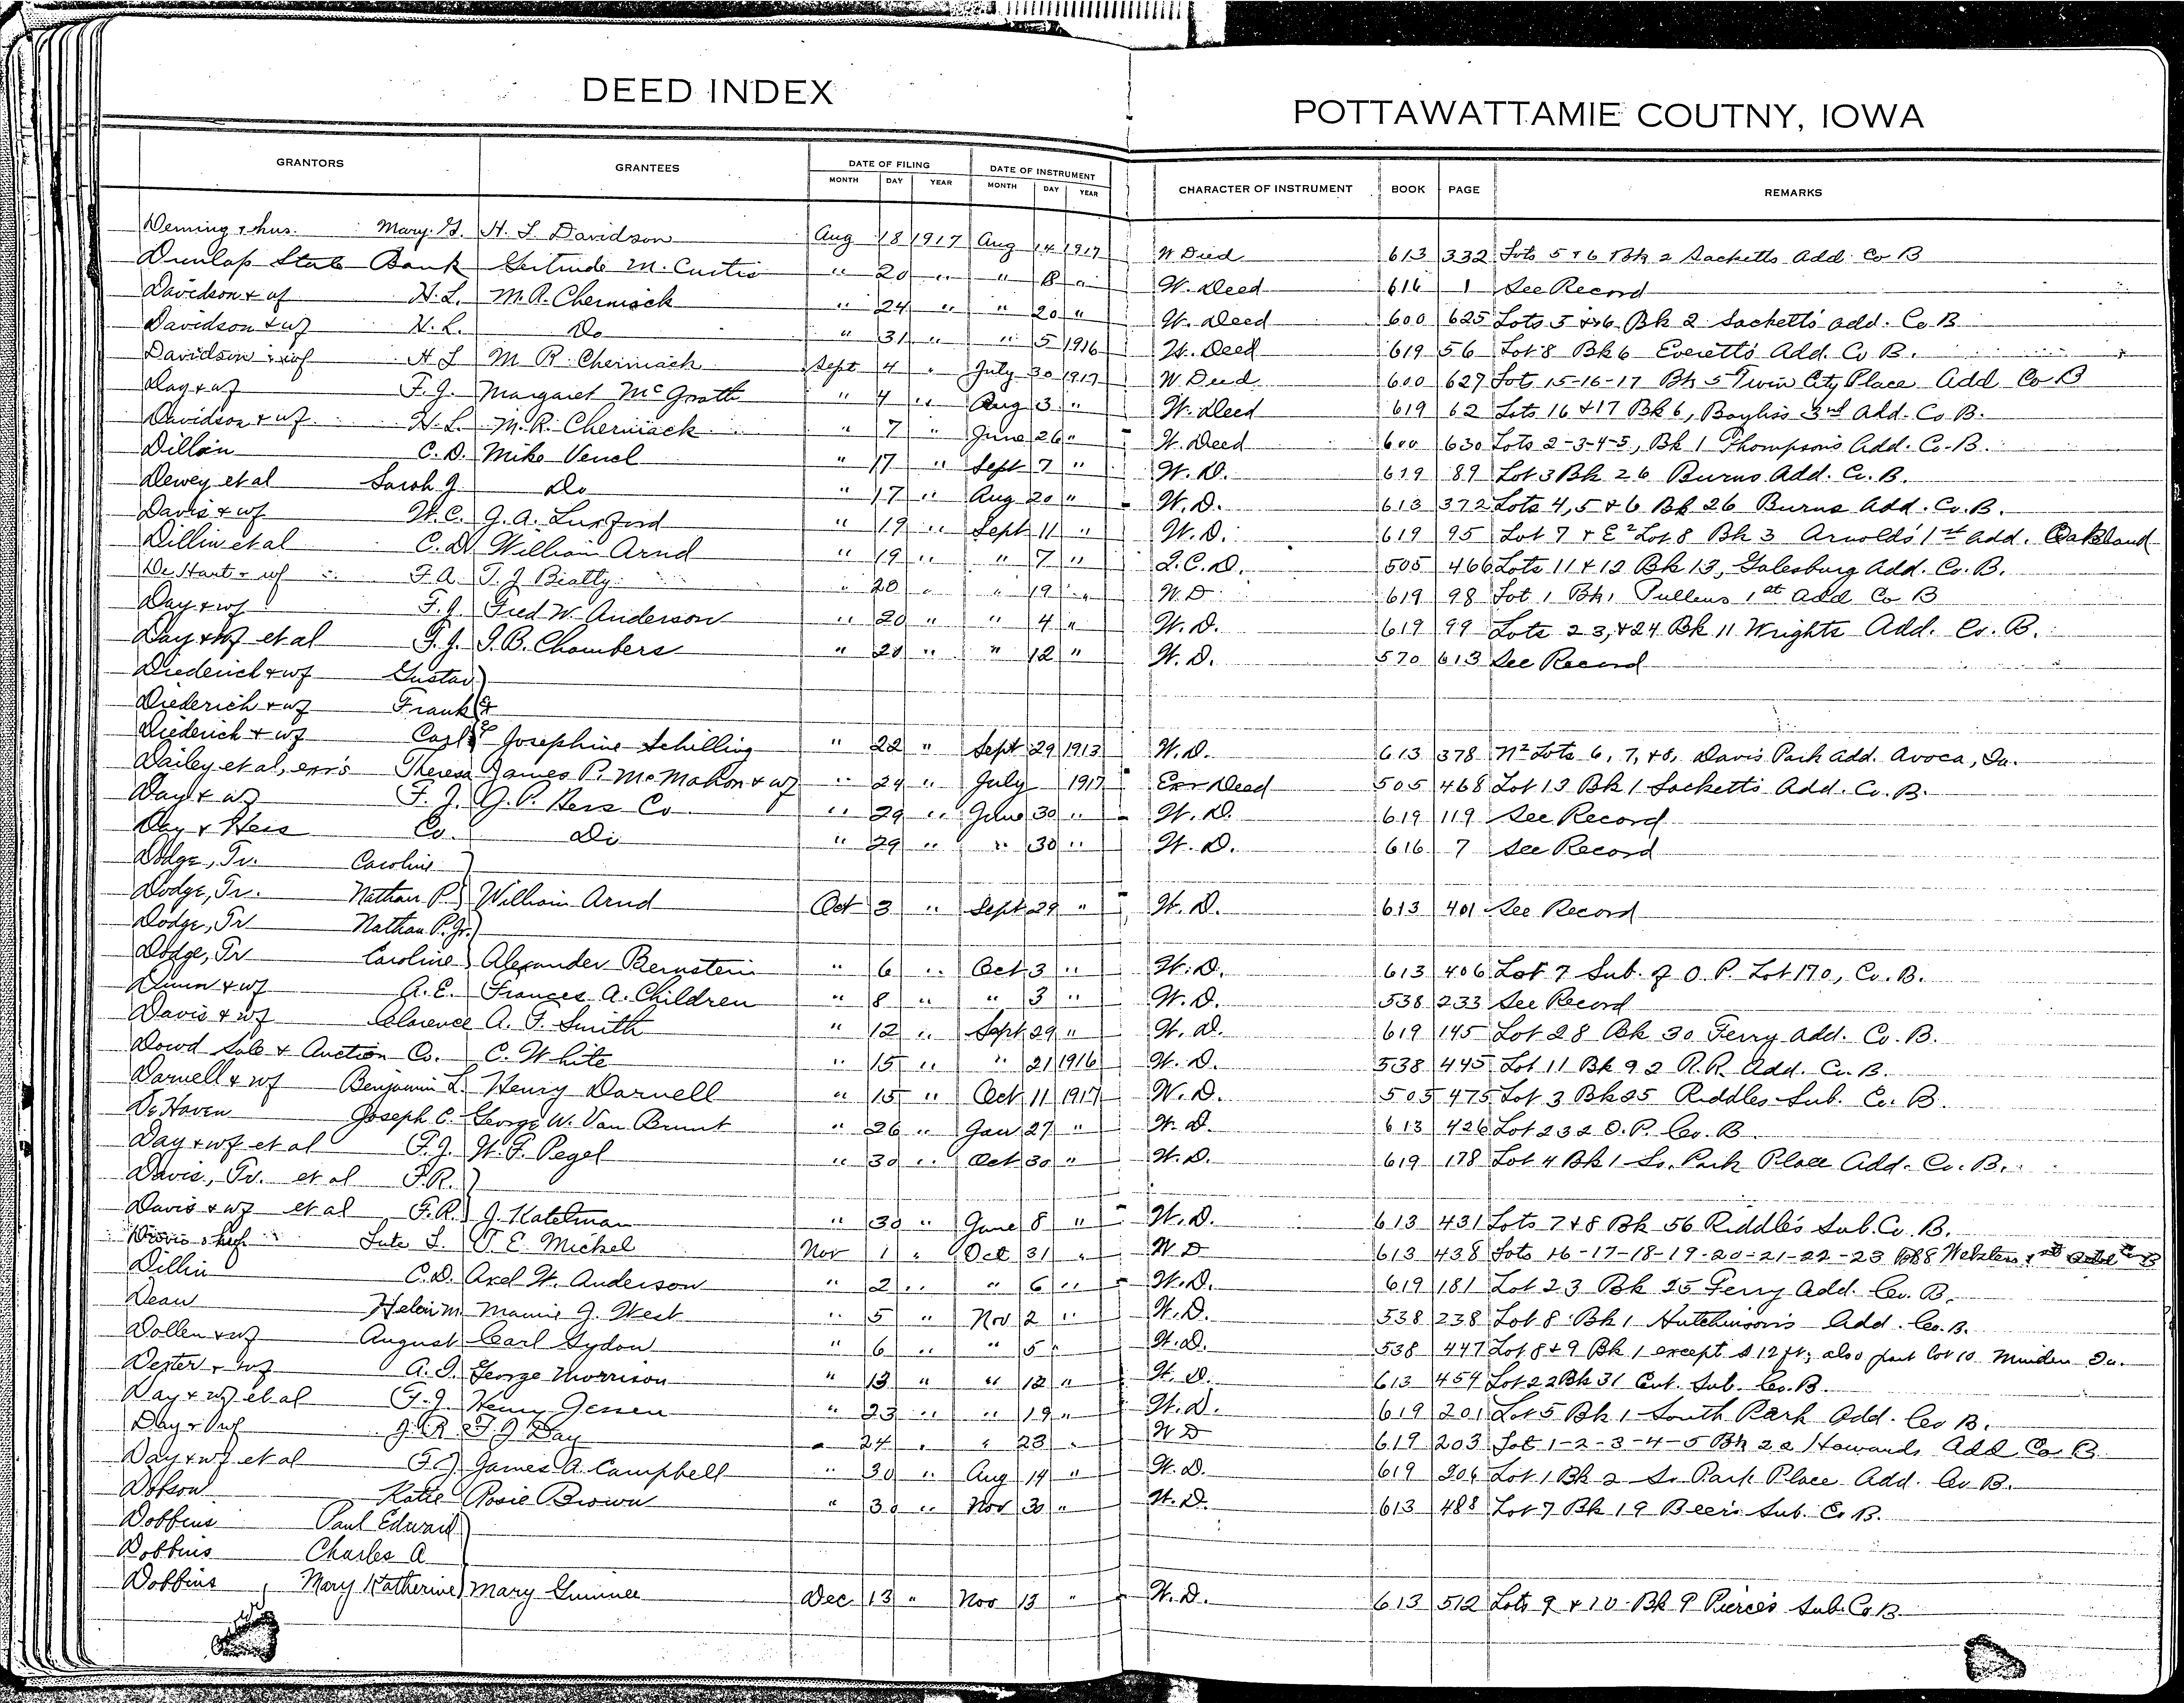 DEED INDEX
POTTAWATTAMIE COUTNY, IOWA
GRANTORS GRANTEES DATE OF FILING DATE OF INSTRUMENT CHARACTER OF INSTRUMENT BOOK PAGE REMARKS
MONTH DAY YEAR MONTH DAY YEAR
Deming & hus. Mary G. H. L Davidson Aug 18 1917 Aug 14 1917 W Deed 613 332 Lots 5 & 6 Bk 2 Sacketts Add. Co B
Dunlap State Bank Gertrude M. Curtis " 20 " " 8 " W. Deed 616 1 See Record
Davidson & wf H. L. M. R. Cherniack " 24 " " 20 " W. Deed 600 625 Lots 5 & 6 Bk 2 Sacketts add. Co. B
Davidson & wf H. L. Do " 31 " " 5 1916 W. Deed 619 56 Lot 8 Bk 6 Everetts Add. Co B.
Davidson & wf H L M R. Cherniack Sept 4 " July 30 1917 W Deed 600 627 Lot 15-16-17 Bk 5 Twin City Place Add Co B
Day & wf F. J. Margaret McGrath " 4 " Aug 3 " W. Deed 619 62 Lots 16 & 17 Bk 6, Bayliss 3rd Add. Co B.
Davidson & wf H. L. M. R. Cherniack " 7 " June 26 " W. Deed 600 630 Lots 2-3-4-5, Bk 1 Thompsons Add. Co. B.
Dillin C. D. Mike Vencl " 17 " Sept 7 " W. D. 619 89 Lot 3 Bk 26 Burns Add. Co. B.
Dewey et al Sarah J. Do " 17 " Aug 20 " W. D. 613 372 Lots 4, 5 & 6 Bk 26 Burns Add. Co. B.
Davis & wf W. C. J. A. Luxford " 19 " Sept 11 " W. D. 619 95 Lot 7 & E2 Lot 8 Bk 3 Arnold's 1st add. Oakland
Dillin et al C. D. William Arnd " 19 " " 7 " Q. C. D. 505 466 Lots 11 & 12 Bk 13, Galesburg Add. Co. B.
De Hart & wf F. A. T. J Beatty " 20 " " 19 " W. D 619 98 Lot 1 Bk 1 Pullens 1st add Co B
Day & wf F. J. Fred W. Anderson " 20 " " 4 " W. D. 619 99 Lots 23, & 24 Bk 11 Wrights Add. Co. B.
Day & wf et al F. J. I. B. Chambers " 20 " " 12 " W. D. 570 613 See Record
Diederich & wf Gustav
Diederich & wf Frank
Diederich & wf Carl Josephine Schilling " 22 " Sept 29 1913 W. D. 613 378 N2 Lots 6, 7, & 8, Davis Park Add. Avoca, Ia.
Dailey et al, exr's Theresa James P. McMahon & wf " 24 " July 1917 Exr Deed 505 468 Lot 13 Bk 1 Sacketts Add. Co. B.
Day & wf F. J. J. P. Hess Co " 29 " June 30 " W. D. 619 119 See Record
Day & Hess Co. Do " 29 " " 30 " W. D. 616 7 See Record
Dodge, Tr. Caroline
Dodge, Tr. Nathan P. William Arnd Oct 3 " Sept 29 " W. D. 613 401 See Record
Dodge, Tr Nathan P. Jr.
Dodge, Tr Caroline Alexander Bernstein " 6 " Oct 3 " W. D. 613 406 Lot 7 Sub. of O. P. Lot 170, Co. B.
Dunn & wf A. E. Frances A. Children " 8 " " 3 " W. D. 538 233 See Record
Davis & wf Clarence A. F. Smith " 12 " Sept 29 " W. D. 619 145 Lot 28 Bk 30 Ferry Add. Co. B.
Dowd Sale & Auction Co. C. White " 15 " " 21 1916 W. D. 538 445 Lot 11 Bk 92 R. R. Add. Co. B.
Darnell & wf Benjamin L. Henry Darnell " 15 " Oct 11 1917 W. D. 505 475 Lot 3 Bk 25 Riddles Sub. Co. B.
De Haven Joseph C. George W. Van Brunt " 26 " Jan 27 " W. D. 613 426 Lot 232 O. P. Co. B
Day & wf et al F. J. W. F. Pegel " 30 " Oct 30 " W. D. 619 178 Lot 4 Bk 1 So. Park Place Add. Co. B.
Davis, Tr. et al F. R.
Davis & wf et al F. R. J. Katelman " 30 " June 8 " W. D. 613 431 Lots 7 & 8 Bk 56 Riddle's Sub. Co. B.
Davis Lute L. T. E. Mickel Nov 1 " Oct 31 " W D 613 438 Lots 16-17-18-19-20-21-22-23 Bk 8 Websters 1st Add Co B
Dillin C. D. Axel W. Anderson " 2 " " 6 " W. D. 619 181 Lot 23 Bk 25 Ferry Add. Co. B.
Dean Helen M Mamie J. West " 5 " Nov 2 " W. D. 538 238 Lot 8 Bk 1 Hutchinson's Add. Co. B.
Dollen & wf August Carl Sydow " 6 " " 5 " W. D. 538 447 Lot 8 & 9 Bk 1 except S 12 ft, also part lot 10 Minden Ia.
Dexter & wf A. I. George Morrison " 13 " " 12 " W. D. 613 454 Lot 22 Bk 31 Cent. Sub. Co. B.
Day & wf et al F. J. Henry Jensen " 23 " " 19 " W. D. 619 201 Lot 5 Bk 1 South Park Add. Co B.
Day & wf J. R. F. J Day " 24 " " 23 " W D 619 203 Lot 1-2-3-4-5 Bk 22 Howards Add Co. B
Day & wf et al F. J James A. Campbell " 30 " Aug 14 " W. D. 619 206 Lot 1 Bk 2 So Park Place Add. Co B.
Dobson Katie Rosie Brown " 30 " Nov 30 " W. D. 613 488 Lot 7 Bk 19 Beer's Sub. Co B.
Dobbins Paul Edward
Dobbins Charles A
Dobbins Mary Katherine Mary Dec 13 " Nov 13 " W. D. 613 512 Lots 9 & 10 Bk 9 Pierce's Sub. Co B